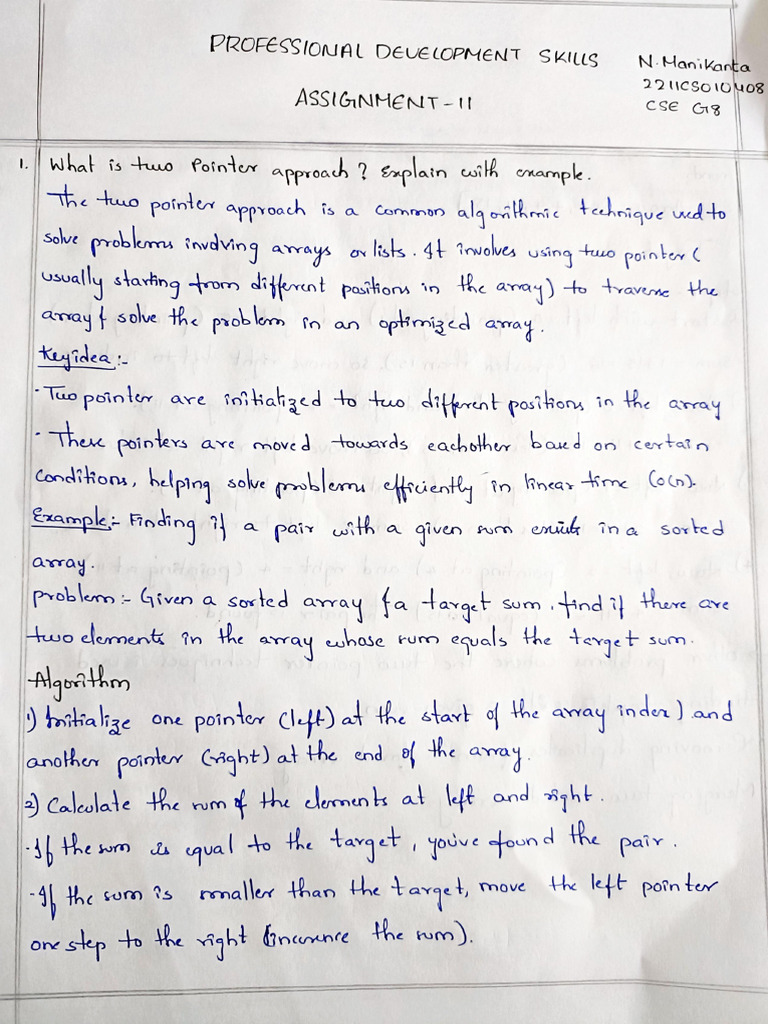 PROFESSIONAL DEVELOPMENT SKILLS
N. Manikanta
2211CS010408
CSE G8
ASSIGNMENT-II
1. What is two Pointer approach? Explain with example.
The two pointer approach is a common algorithmic technique used to
solve problems involving arrays or lists. It involves using two pointer (
usually starting from different positions in the array) to traverse the
array & solve the problem in an optimized array.
Key idea:-
· Two pointer are initialized to two different positions in the array
· These pointers are moved towards eachother based on certain
conditions, helping solve problems efficiently in linear time (O(n).
Example:- Finding if a pair with a given sum exists in a sorted
array.
problem:- Given a sorted array & a target sum. find if there are
two elements in the array whose sum equals the target sum.
Algorithm
1) Initialize one pointer (left) at the start of the array index) and
another pointer (right) at the end of the array.
2) Calculate the sum of the elements at left and right.
·If the sum is equal to the target, you've found the pair.
·If the sum is smaller than the target, move the left pointer
one step to the right (the sum).